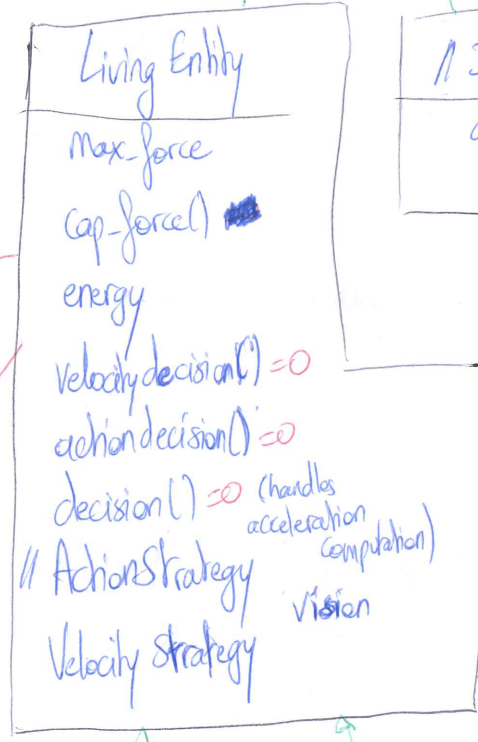 Living Entity
max_force
cap_force()
energy
velocitydecision()=0
actiondecision()=0
decision()=0 (handles
acceleration
computation)
// ActionStrategy
Vision
Velocity Strategy